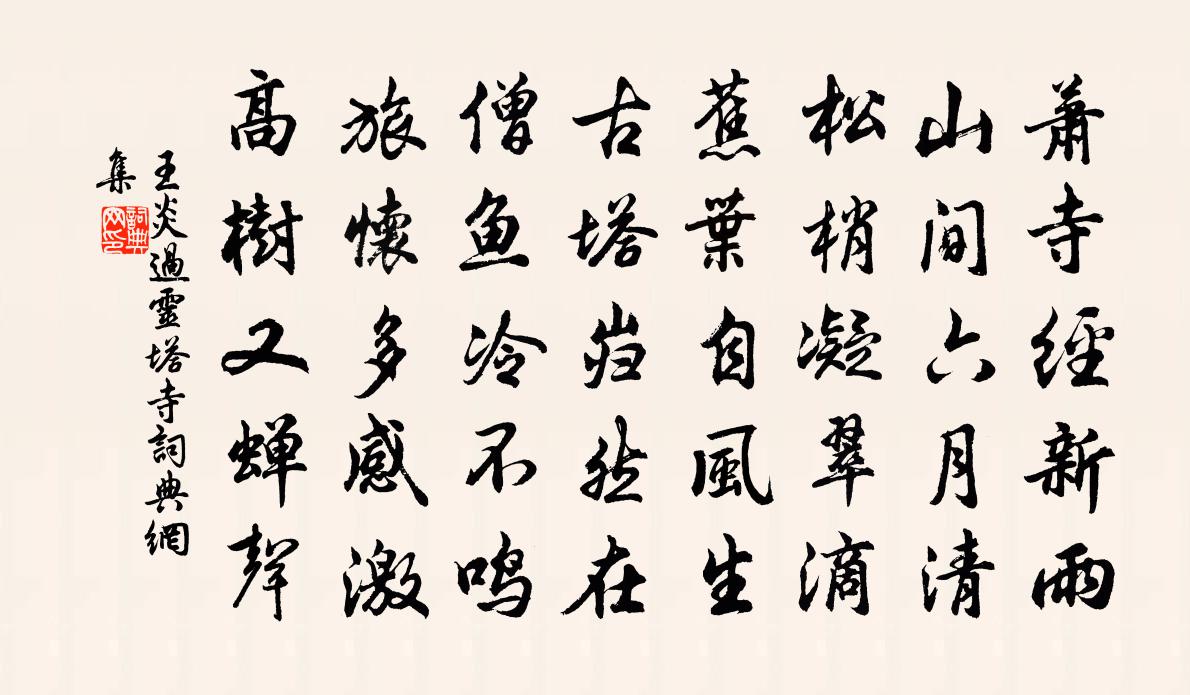 蕭寺經新雨
山间六月清
松梢凝翠滴
蕉葉自風生
古塔岿然在
僧鱼冷不鸣
旅懷多感激
高樹又蝉聲
王炎過靈塔寺詞典網
集
詞典
网印